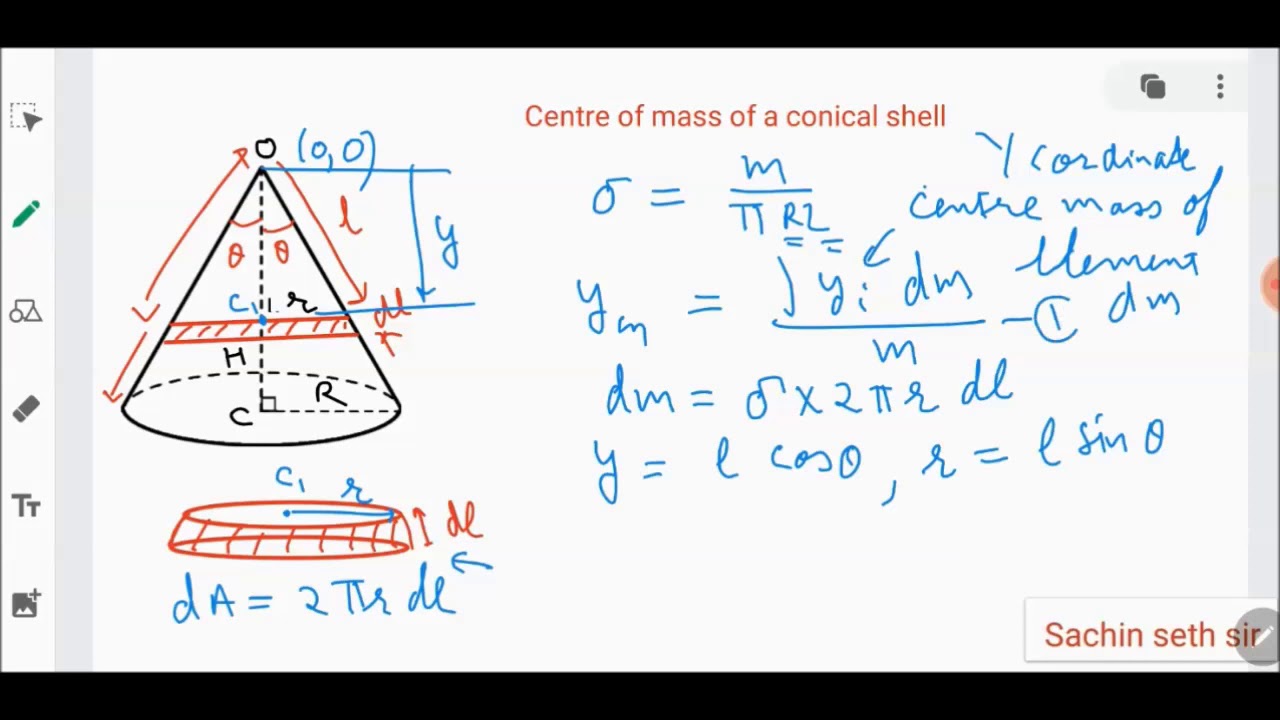 Centre of mass of a conical shell
O (0,0)
l
y
θ θ
C₁ r
dl
H
R
C
C₁ r
dl
dA = 2πr dl
σ = m / πRL
Y cordinate
centre mass of
element
dm
y_cm = ∫ yᵢ dm / m — ①
dm = σ × 2πr dl
y = l cosθ , r = l sinθ
Tт
Sachin seth sir